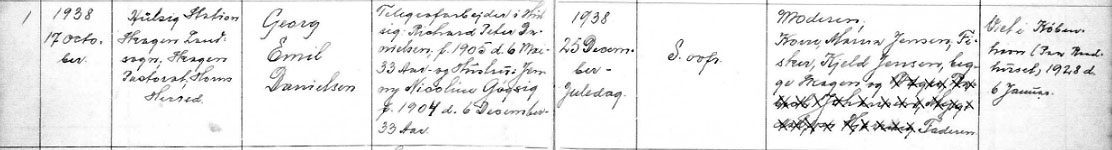 1
1938
17 Octo-
ber.
Hulsig Station
Skagen Land-
sogn, Skagen
Pastorat, Horns
Herred.
Georg
Emil
Danielsen
Telegrafarbejder i Hul-
sig Richard Peter Da-
nielsen, f. 1905 d. 6 Mai
33 Aar - og Hustru: Jen-
ny Nicoline Gaysig
f. 1904 d. 6 December
33 Aar.
1938
25 Decem-
ber -
Juledag.
S. oofr.
Moderen,
Kone, Maren Jensen, Fi-
sker, Kjeld Jensen, beg-
ge Skagen, og
Faderen
Viet i Køben-
havn (Paa Raad-
huset), 1928 d.
6 Januar.